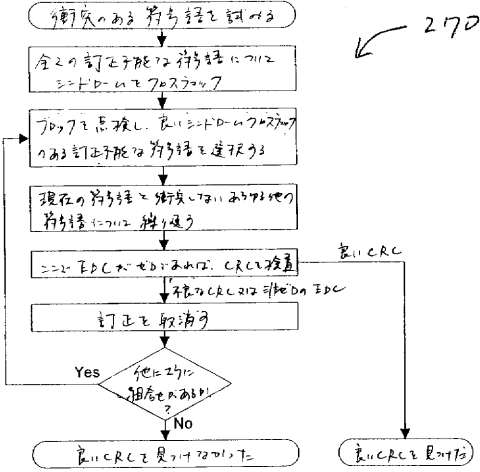 衝突のある符号語を試みる
270
全ての訂正可能な符号語について
シンドロームをクロスチェック
ブロックを点検し、良いシンドロームクロスチェック
のある訂正可能な符号語を選択する
現在の符号語と衝突しないあらゆる他の
符号語について繰り返す
ここでEDCがゼロであれば、CRCを検査
良いCRC
不良なCRC又は非ゼロのEDC
訂正を取消す
Yes
他にさらに
組合せがあるか
?
No
良いCRCを見つけなかった
良いCRCを見つけた